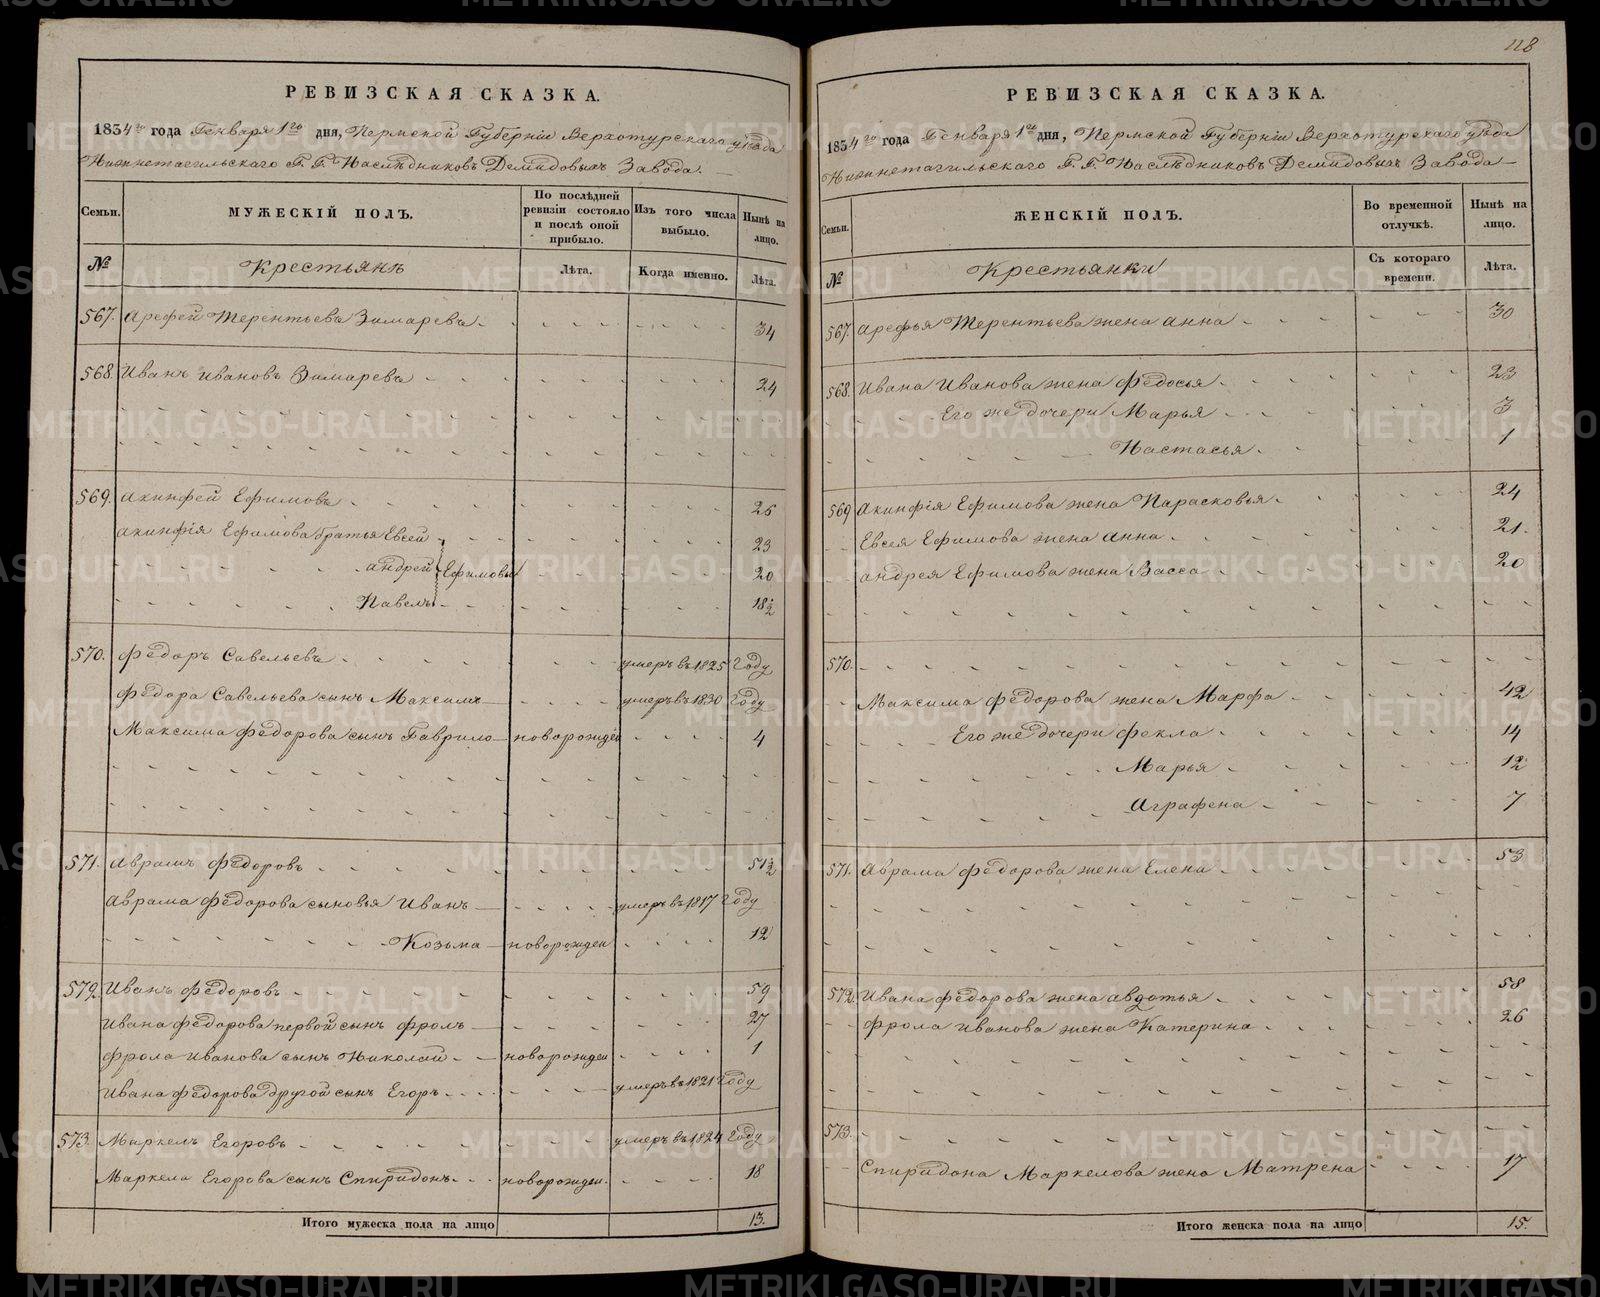 РЕВИЗСКАЯ СКАЗКА.
1834го года Генваря 1го дня, Пермской Губерніи Верхотурскаго уѣзда
Нижнетагильскаго Г.Г. Наслѣдниковъ Демидовыхъ Завода.
Семьи.
МУЖЕСКІЙ ПОЛЪ.
По послѣдней ревизіи состояло и послѣ оной прибыло.
Изъ того числа выбыло.
Нынѣ на лицо.
№
Крестьянѣ
Лѣта.
Когда именно.
Лѣта.
567. Арефей Терентьевъ Зимаревъ 34
568. Иванъ Ивановъ Зимаревъ 24
569. Акинфей Ефимовъ 25
Акинфія Ефимова братья Евсей 23
Андрей Ефимовы 20
Павелъ 18½
570. Федоръ Савельевъ умеръ въ 1825 году
Федора Савельева сынъ Максимъ умеръ въ 1830 году
Максима Федорова сынъ Гаврило новорожден 4
571. Аврамъ Федоровъ 51½
Аврама Федорова сыновья Иванъ умеръ въ 1817 году
Козьма новорожден 12
572. Иванъ Федоровъ 59
Ивана Федорова первой сынъ Фролъ 27
Фрола Иванова сынъ Николай новорожден 1
Ивана Федорова другой сынъ Егоръ умеръ въ 1821 году
573. Маркелъ Егоровъ умеръ въ 1824 году
Маркела Егорова сынъ Спиридонъ новорожден. 18
Итого мужеска пола на лицо 13.
118
РЕВИЗСКАЯ СКАЗКА.
1834го года Генваря 1го дня, Пермской Губерніи Верхотурскаго уѣзда
Нижнетагильскаго Г.Г. Наслѣдниковъ Демидовыхъ Завода
Семьи.
ЖЕНСКІЙ ПОЛЪ.
Во временной отлучкѣ.
Нынѣ на лицо.
№
Крестьянки
Съ котораго времени.
Лѣта.
567. Арефья Терентьева жена Анна 30
568. Ивана Иванова жена Федосья 23
Его же дочери Марья 3
Настасья 1
569 Акинфія Ефимова жена Парасковья 24
Евсея Ефимова жена Анна 21.
Андрея Ефимова жена Васса 20
570.
Максима Федорова жена Марфа 42
Его же дочери Фекла 14
Марья 12
Аграфена 7
571. Аврама Федорова жена Елена 53
572. Ивана Федорова жена Авдотья 58
Фрола Иванова жена Катерина 26
573.
Спиридона Маркелова жена Матрена 17
Итого женска пола на лицо 15.
METRIKI.GASO-URAL.RU